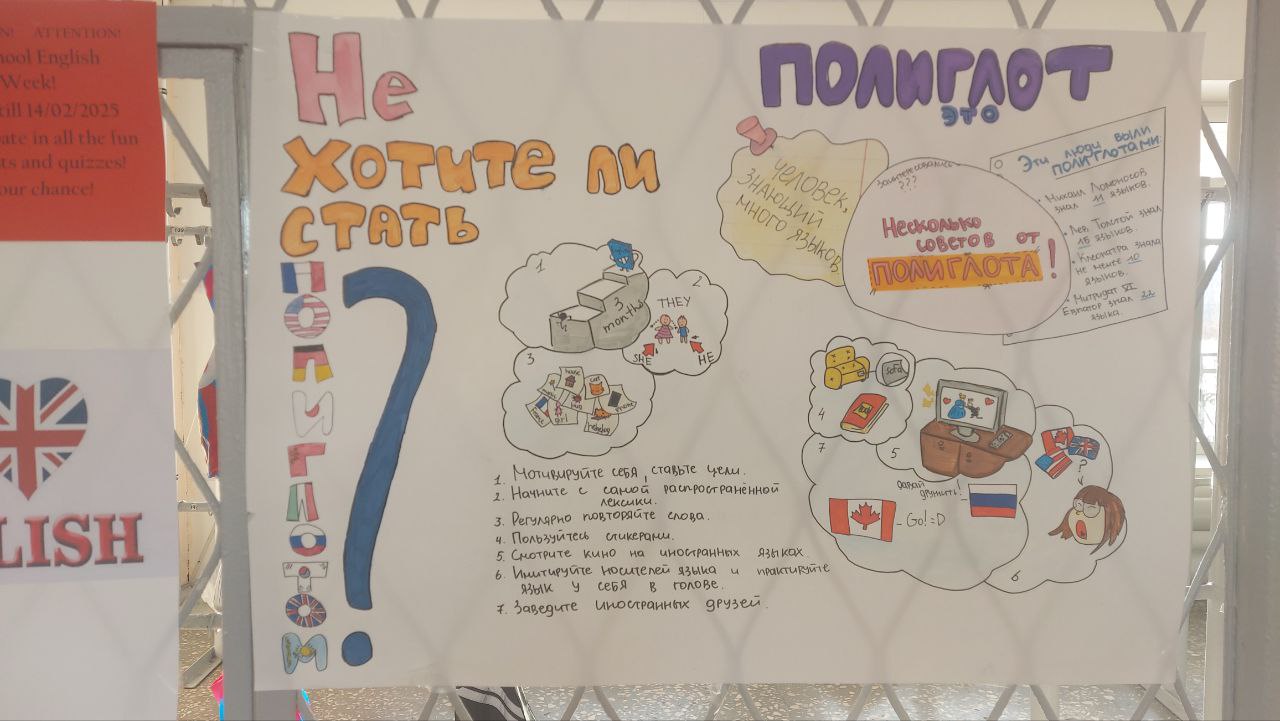 ATTENTION!
ool English
Week!
till 14/02/2025
ate in all the fun
ts and quizzes!
our chance!
LISH
Не
хотите ли
стать
полиглотом
?
ПОЛИГЛОТ
это
человек,
знающий
много языков.
Заинтересовались
???
Несколько
советов от
ПОЛИГЛОТА!
Эти люди были
полиглотами:
• Михаил Ломоносов
знал 11 языков.
• Лев Толстой знал
15 языков.
• Клеопатра знала
не менее 10
языков.
• Митридат VI
Евпатор знал 22
языка.
1
3
months
2
THEY
SHE
HE
3
house
cat
girl
hedgehog
4
sofa
BOOK
5
7
Давай
дружить!
- Go! =D
?
6
1. Мотивируйте себя, ставьте цели.
2. Начните с самой распространённой
лексики.
3. Регулярно повторяйте слова.
4. Пользуйтесь стикерами.
5. Смотрите кино на иностранных языках.
6. Имитируйте носителей языка и практируйте
язык у себя в голове.
7. Заведите иностранных друзей.